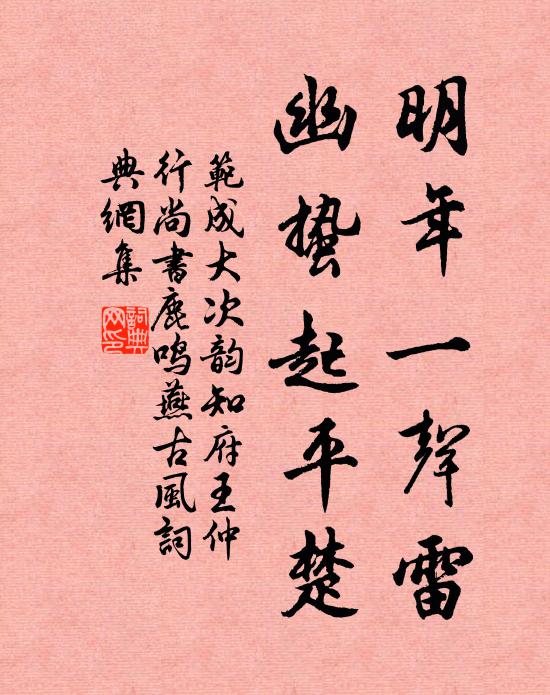 明年一聲雷
幽蟄起平楚
範成大次韵知府王仲
行尚書鹿鸣燕古風詞
典網集
詞典
网印